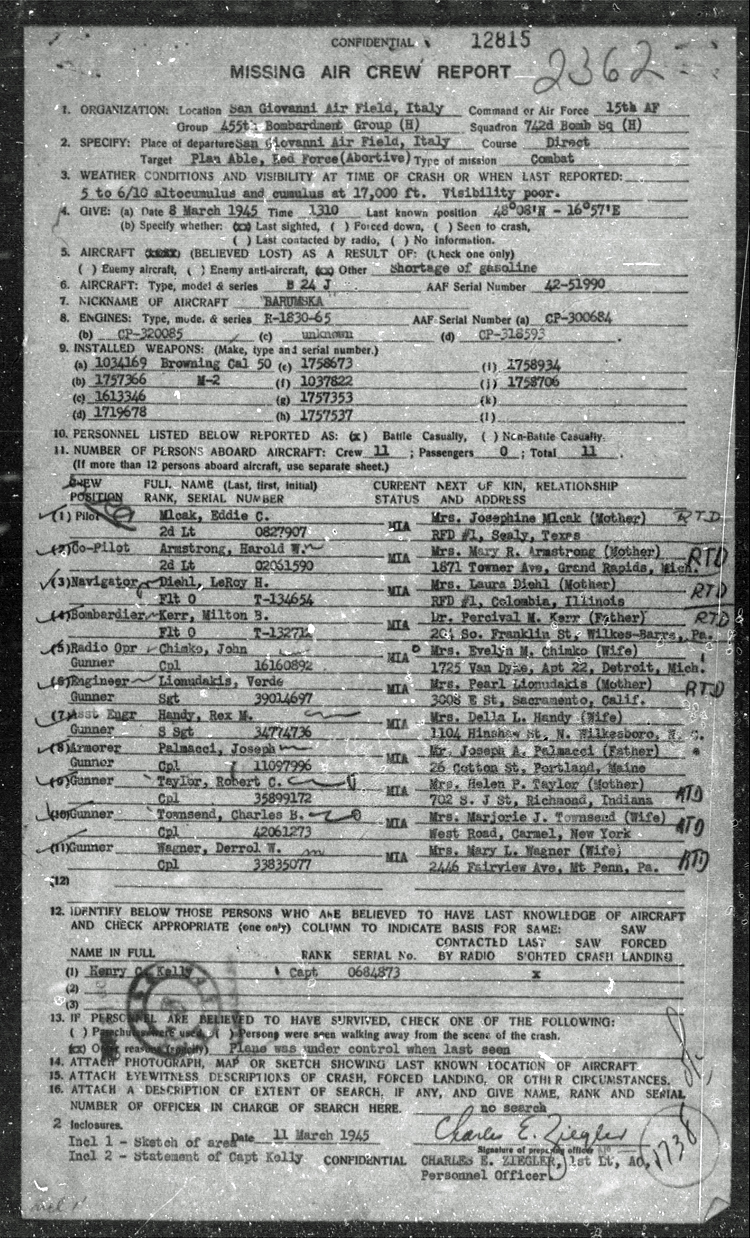 CONFIDENTIAL 12815
2362
MISSING AIR CREW REPORT
1. ORGANIZATION: Location San Giovanni Air Field, Italy Command or Air Force 15th AF
Group 455th Bombardment Group (H) Squadron 742d Bomb Sq (H)
2. SPECIFY: Place of departure San Giovanni Air Field, Italy Course Direct
Target Plan Able, Red Force (Abortive) Type of mission Combat
3. WEATHER CONDITIONS AND VISIBILITY AT TIME OF CRASH OR WHEN LAST REPORTED:
5 to 6/10 altocumulus and cumulus at 17,000 ft. Visibility poor.
4. GIVE: (a) Date 8 March 1945 Time 1310 Last known position 48°08'N - 16°57'E
(b) Specify whether: (xx) Last sighted, ( ) Forced down, ( ) Seen to crash,
( ) Last contacted by radio, ( ) No information.
5. AIRCRAFT (BELIEVED LOST) AS A RESULT OF: (Check one only)
( ) Enemy aircraft, ( ) Enemy anti-aircraft, (xx) Other Shortage of gasoline
6. AIRCRAFT: Type, model & series B 24 J AAF Serial Number 42-51990
7. NICKNAME OF AIRCRAFT "BARUMSKA"
8. ENGINES: Type, mode. & series R-1830-65 AAF Serial Number (a) CP-300684
(b) CP-320085 (c) unknown (d) CP-318593
9. INSTALLED WEAPONS: (Make, type and serial number.)
(a) 1034169 Browning Cal 50 (e) 1758673 (i) 1758934
(b) 1757366 M-2 (f) 1037822 (j) 1758706
(c) 1613346 (g) 1757353 (k)
(d) 1719678 (h) 1757537 (l)
10. PERSONNEL LISTED BELOW REPORTED AS: (x) Battle Casualty, ( ) Non-Battle Casualty.
11. NUMBER OF PERSONS ABOARD AIRCRAFT: Crew 11 ; Passengers 0 ; Total 11
(If more than 12 persons aboard aircraft, use separate sheet.)
CREW FULL NAME (Last, first, initial) CURRENT NEXT OF KIN, RELATIONSHIP
POSITION RANK, SERIAL NUMBER STATUS AND ADDRESS
(1) Pilot Mlcak, Eddie C. MIA Mrs. Josephine Mlcak (Mother) RTD
2d Lt 0827907 RFD #1, Sealy, Texas
(2) Co-Pilot Armstrong, Harold W. MIA Mrs. Mary R. Armstrong (Mother) RTD
2d Lt 02061590 1871 Towner Ave, Grand Rapids, Mich.
(3) Navigator Diehl, LeRoy H. MIA Mrs. Laura Diehl (Mother) RTD
Flt O T-134654 RFD #1, Colombia, Illinois
(4) Bombardier Kerr, Milton B. MIA Dr. Percival M. Kerr (Father) RTD
Flt O T-132712 204 So. Franklin St, Wilkes-Barre, Pa.
(5) Radio Opr Chimko, John MIA Mrs. Evelin M. Chimko (Wife)
Gunner Cpl 16160892 1725 Van Dyke, Apt 22, Detroit, Mich.
(6) Engineer Lionudakis, Verde MIA Mrs. Pearl Lionudakis (Mother) RTD
Gunner Sgt 39014697 3008 E St, Sacramento, Calif.
(7) Asst Engr Handy, Rex M. MIA Mrs. Della L. Handy (Wife)
Gunner S Sgt 34774736 1104 Hinshaw St, N. Wilkesboro, N. C.
(8) Armorer Palmacci, Joseph MIA Mr. Joseph A. Palmacci (Father) *
Gunner Cpl 11097996 26 Cotton St, Portland, Maine
(9) Gunner Taylor, Robert C. MIA Mrs. Helen P. Taylor (Mother) RTD
Cpl 35899172 702 S. J St, Richmond, Indiana
(10) Gunner Townsend, Charles B. MIA Mrs. Marjorie J. Townsend (Wife) RTD
Cpl 42061273 West Road, Carmel, New York
(11) Gunner Wagner, Derrol W. MIA Mrs. Mary L. Wagner (Wife) RTD
Cpl 33835077 2446 Fairview Ave, Mt Penn, Pa.
(12)
12. IDENTIFY BELOW THOSE PERSONS WHO ARE BELIEVED TO HAVE LAST KNOWLEDGE OF AIRCRAFT
AND CHECK APPROPRIATE (one only) COLUMN TO INDICATE BASIS FOR SAME: SAW
CONTACTED LAST SAW FORCED
NAME IN FULL RANK SERIAL No. BY RADIO SIGHTED CRASH LANDING
(1) Henry C. Kelly Capt 0684873 x
(2)
(3)
13. IF PERSONNEL ARE BELIEVED TO HAVE SURVIVED, CHECK ONE OF THE FOLLOWING:
( ) Parachutes were used, ( ) Persons were seen walking away from the scene of the crash.
(xx) Other reasons (specify) Plane was under control when last seen
14. ATTACH PHOTOGRAPH, MAP OR SKETCH SHOWING LAST KNOWN LOCATION OF AIRCRAFT.
15. ATTACH EYEWITNESS DESCRIPTIONS OF CRASH, FORCED LANDING, OR OTHER CIRCUMSTANCES.
16. ATTACH A DESCRIPTION OF EXTENT OF SEARCH, IF ANY, AND GIVE NAME, RANK AND SERIAL
NUMBER OF OFFICER IN CHARGE OF SEARCH HERE. no search
2 Inclosures.
Incl 1 - Sketch of area Date 11 March 1945 Charles E. Ziegler
Signature of preparing officer
Incl 2 - Statement of Capt Kelly CONFIDENTIAL CHARLES E. ZIEGLER, 1st Lt, AC, 1738
Personnel Officer